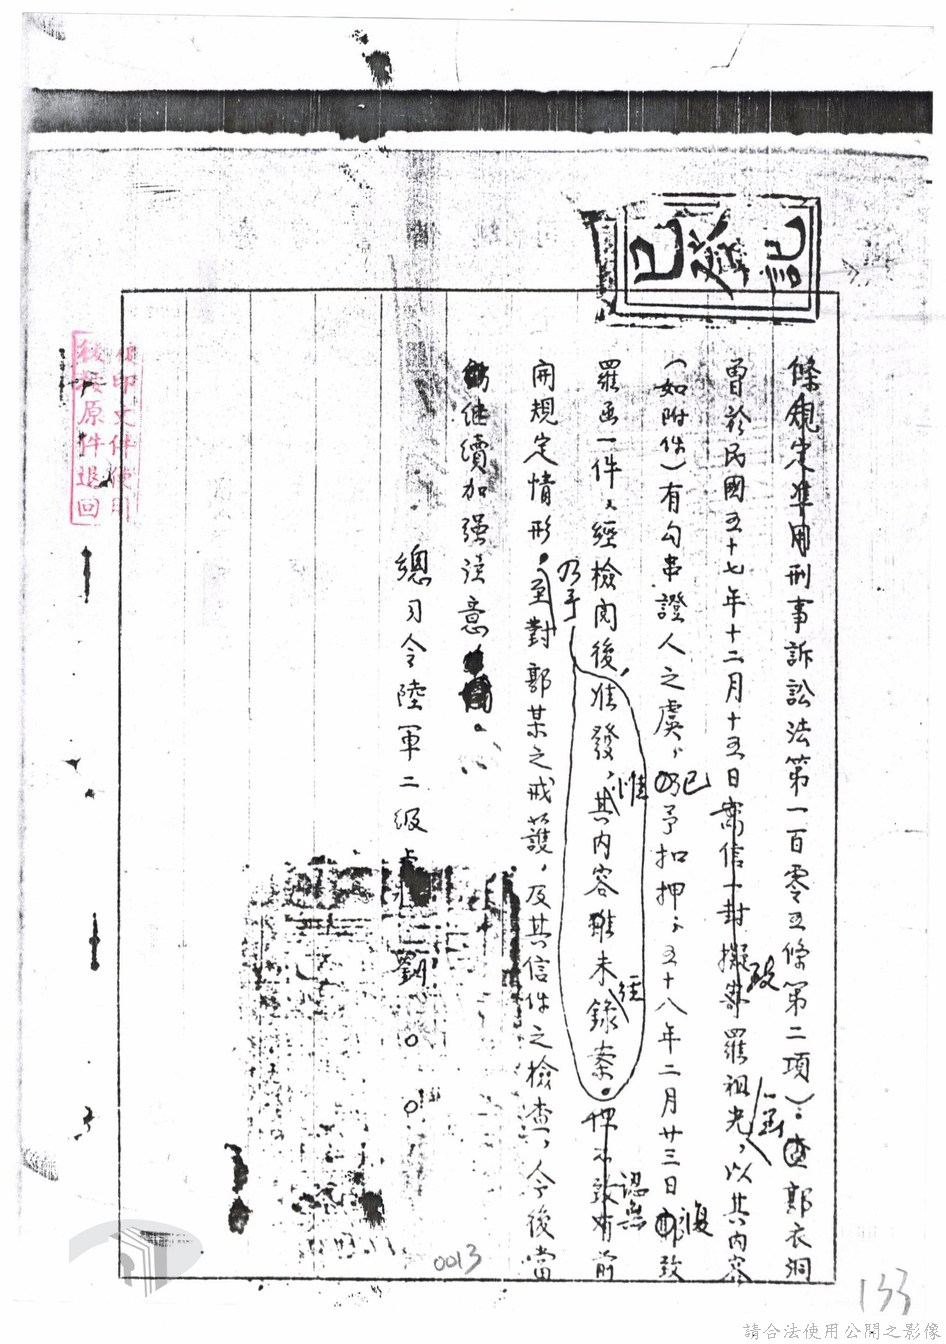 已登記
條規定準用刑事訴訟法第一百零五條第二項)：查郭衣洞
曾於民國五十七年十二月十五日寄信一封擬寄致羅祖光一函，以其內容
(如附件)有勾串證人之虞，已予扣押；五十八年二月廿三日復致
羅函一件，經檢閱後，乃予准發，惟其內容雖未經錄案。認無前
開規定情形。至對郭某之戒護，及其信件之檢查，今後當
飭繼續加強注意。
總司令陸軍二級上將劉○○
複印文件使用
後按原件退回
0013
133
請合法使用公開之影像